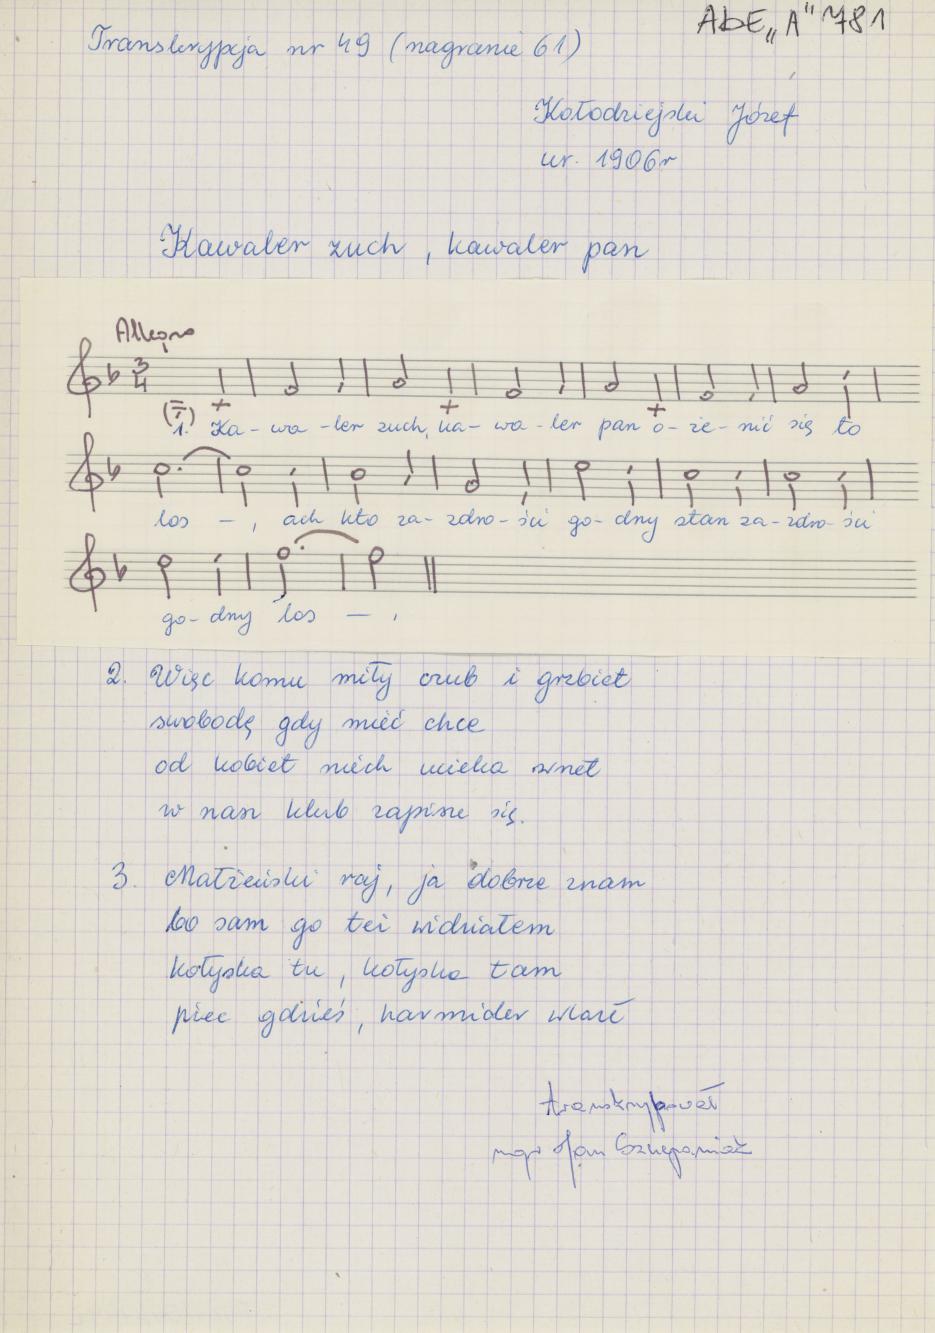 AbE „A" 781
Transkrypcja nr 49 (nagranie 61)
Kołodziejski Józef
ur. 1906r
Kawaler zuch, kawaler pan
Allegro
3
4
1. Ka-wa-ler zuch, ka-wa-ler pan o-że-nić się to
los -, ach kto za-zdro-ści go-dny stan za-zdro-ści
go-dny los -.
2. Więc komu miły czub i grzbiet
swobodę gdy mieć chce
od kobiet niech ucieka wnet
w nasz klub zapisze się.
3. Małżeński raj, ja dobrze znam
bo sam go też widziałem
kołyska tu, kołyska tam
piec gdzieś, harmider
transkrybował
mgr Jan Szczepaniak